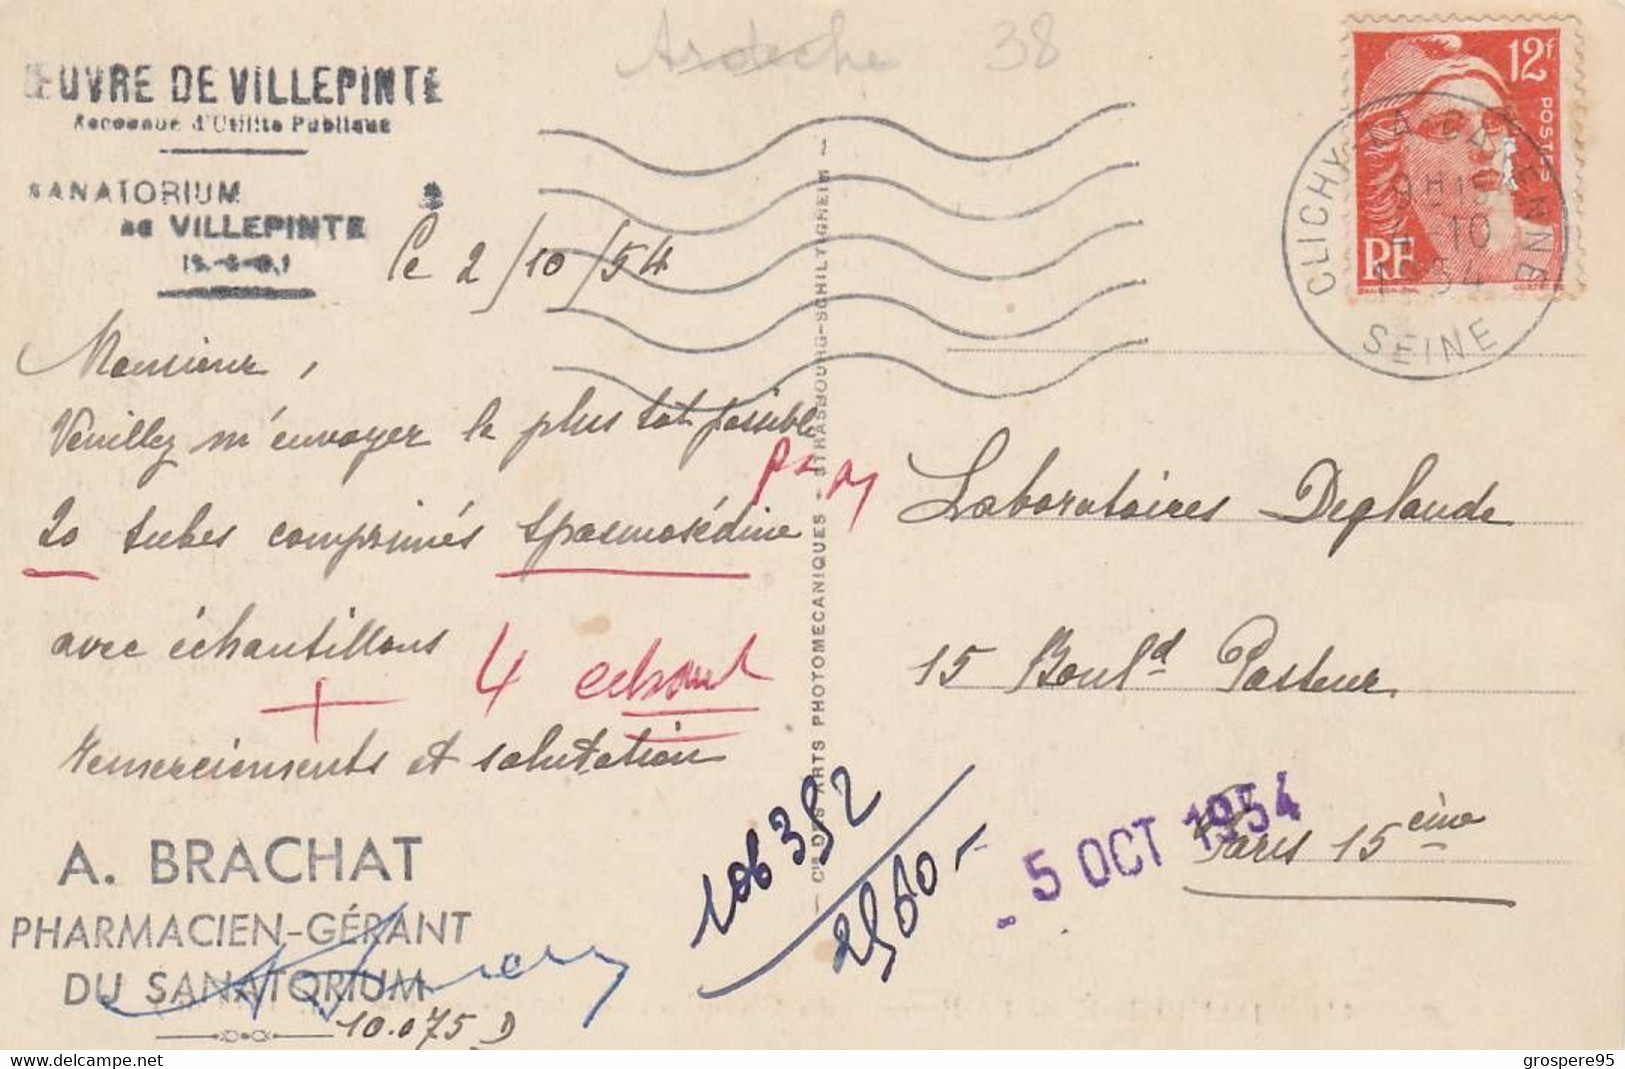 Ardeche 38
ŒUVRE DE VILLEPINTE
Reconnue d'Utilité Publique
SANATORIUM
de VILLEPINTE
Le 2/10/54
Monsieur,
Veuillez m'envoyer le plus tot possible
20 tubes comprimés Spasmosédine
avec échantillons
+ 4 echant
Remerciements et salutation
A. BRACHAT
PHARMACIEN-GÉRANT
DU SANATORIUM
10.075 D
Cie DES ARTS PHOTOMECANIQUES - STRASBOURG-SCHILTIGHEIM
12f
POSTES
RF
CLICHY-LA-GARENNE
9H15
4-10
1954
SEINE
Laboratoires Deglaude
15 Boul^d Pasteur
Paris 15ème
- 5 OCT 1954
106352
grospere95
www.delcampe.net